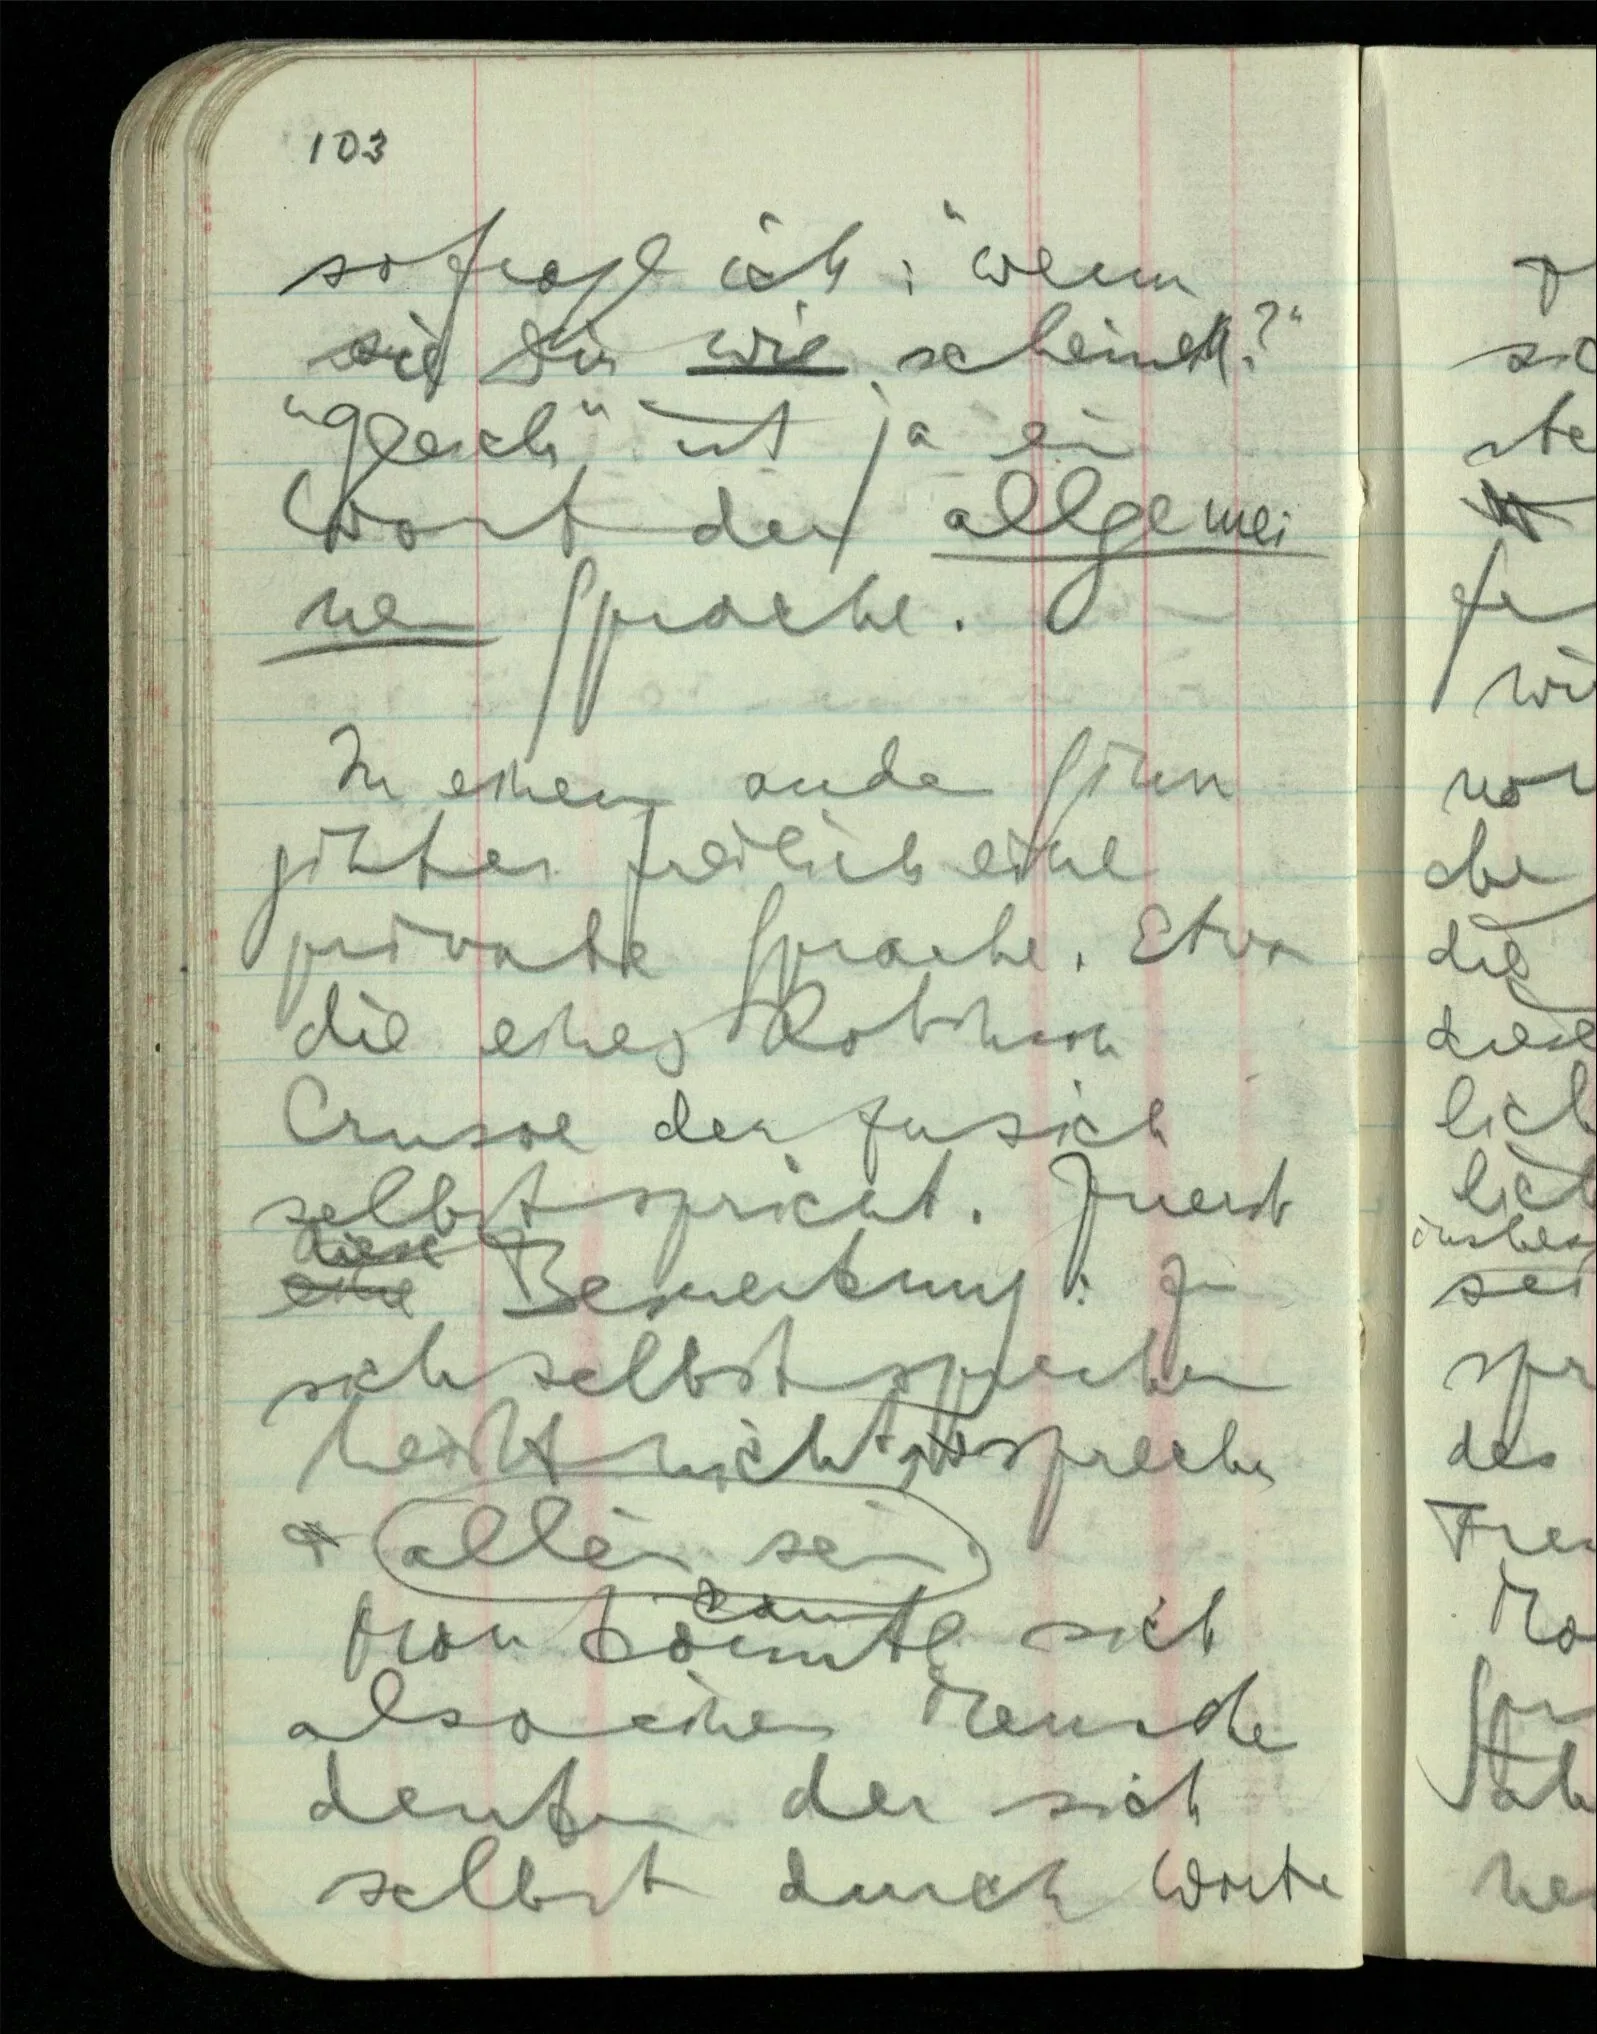 103
so frage ich: "wenn
sie Dir wie scheinen?"
"gleich" ist ja ein
Wort der allgemei
nen Sprache.
In einem andern Sinn
gibt es freilich eine
private Sprache. Etwa
die eines Robinson
Crusoe der zu sich
selbst spricht. Zuerst
diese
eine Bemerkung: Zu
sich selbst sprechen
heißt nicht, sprechen
allein sein
kann
Man könnte sich
also einen Menschen
denken der sich
selbst durch Worte
sic
ste
wi
die
lich
lich
insbes
sei
spr
des